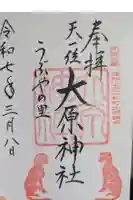 奉拝
天一位
大原神社
うぶやの里
令和七年三月八日